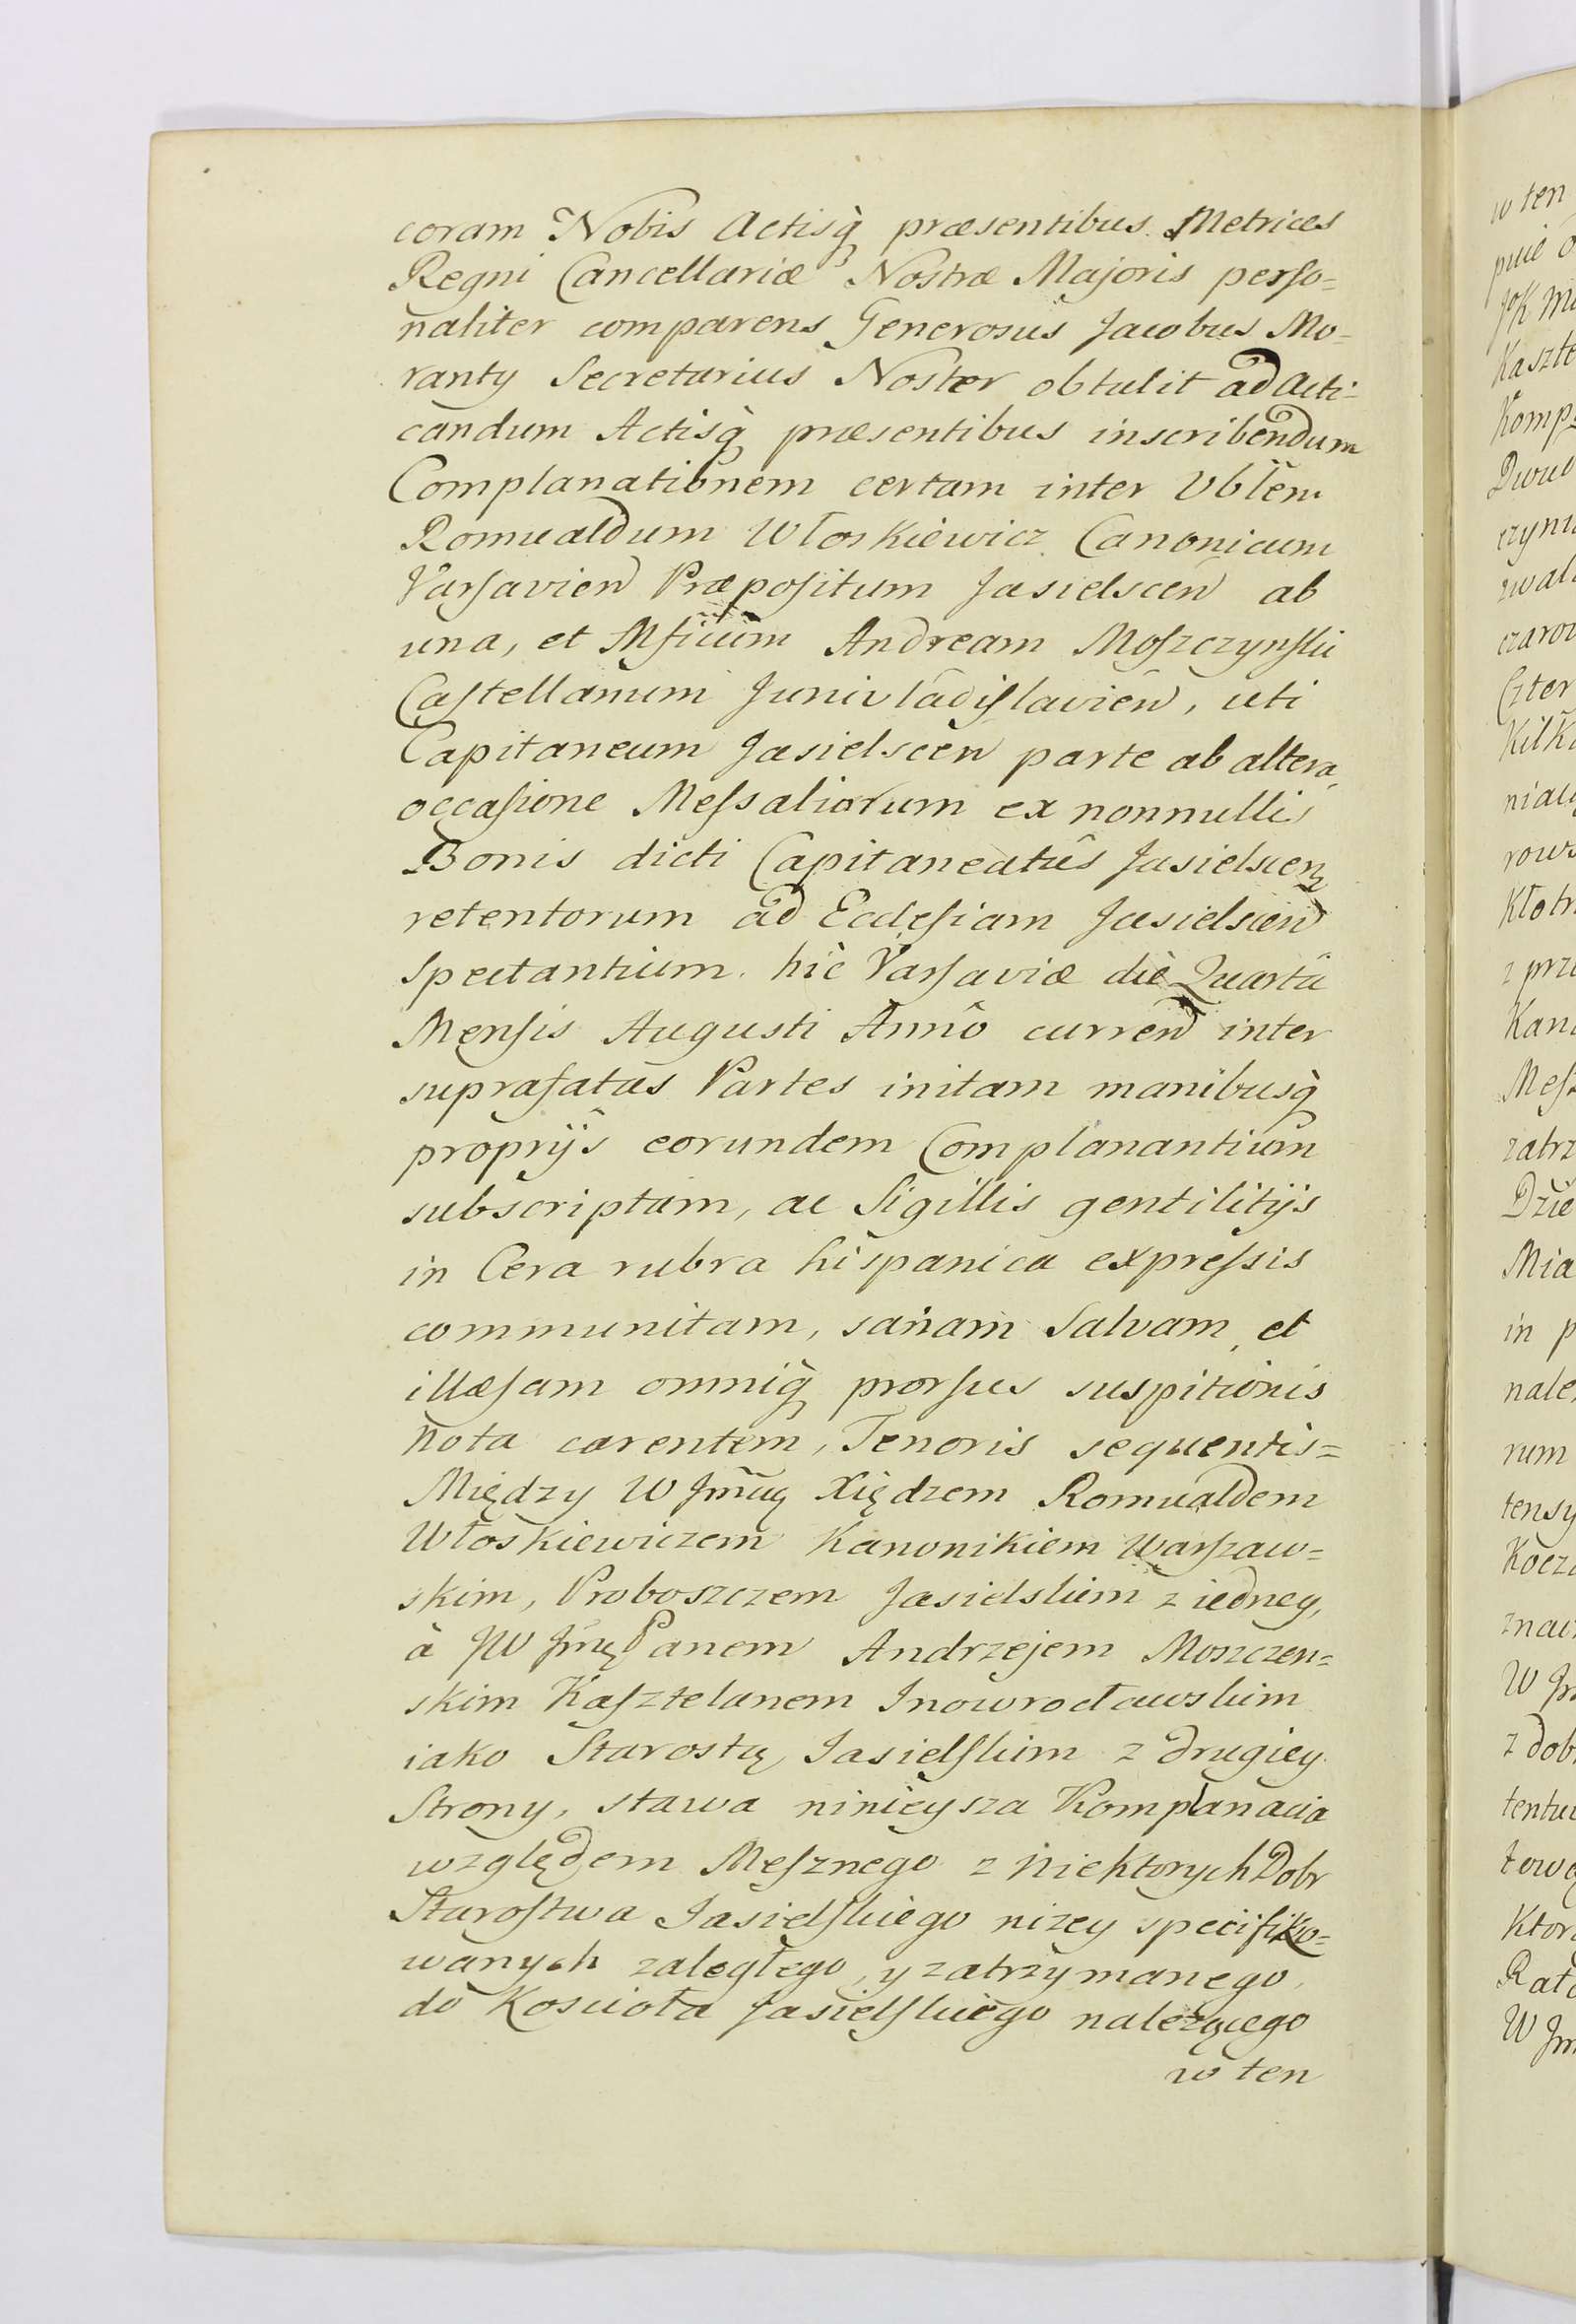 coram Nobis Actisq̀ præsentibus Metrices
Regni Cancellariæ Nostræ Majoris perso=
naliter comparens Generosus Jacobus Mo=
ranty Secretarius Noster obtulit ad Acti=
candum Actisq̀ præsentibus inscribendum
Complanationem certam inter Vblem
Romualdum Włoskiewicz Canonicum
Varsavien Præpositum Jasielscen ab
una, et Mficum Andream Moszczynski
Castellanum Junivladislavien, uti
Capitaneum Jasielscen parte ab altera,
occasione Messaliorum ex nonnullis
Bonis dicti Capitaneatûs Jasielscen
retentorum ad Ecclesiam Jasielscen
spectantium. hic Varsaviæ die Quarta
Mensis Augusti Annô curren inter
suprafatas Partes initam manibusq̀
proprijs eorundem Complanantium
subscriptam, ac Sigillis gentilitijs
in Cera rubra hispanica expressis
communitam, sanam salvam, et
illæsam omniq̀ prorsus suspitionis
nota carentem, Tenoris sequentis=
Między W Jmcią Xiędzem Romualdem
Włoskiewiczem Kanonikiem Warszaw=
skim, Proboszczem Jasielskim z iedney,
à JW Jmcią Panem Andrzejem Moszczen=
skim Kasztelanem Inowrocławskim
iako Starostą Jasielskim z drugiey
Strony, stawa ninieysza Komplanacia
względem Mesznego z niektorych Dobr
Starostwa Jasielskiego niżey specifiko=
wanych zaległego, y zatrzymanego,
do Koscioła Jasielskiego należącego
w ten